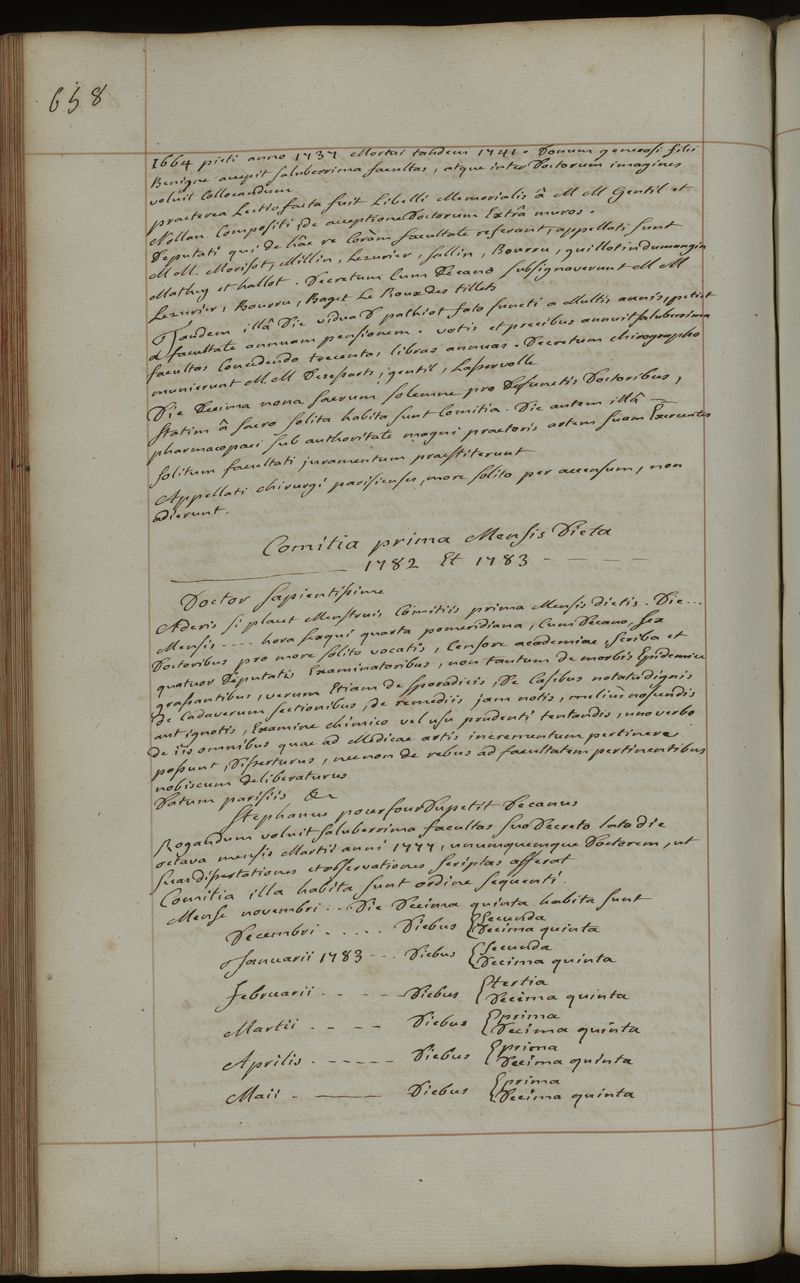 658
1664 picti anno 1737 Mortui tandem 1741. Donum generosi filii
Benigne accepit saluberrima facultas, atque inter Doctorum imagines
voluit Collocandum
praeterea Lectio facta fuit Libelli Memorialis â M M Gentil et
Nollan Compositi, de acceptione Doctorum Extrâ muros.
Deputati qui de hâc re Coràm facultate referant, appellati sunt
M M. Morisot, Millin, Lezurier, Sallin, Bourru, guillotin dumangin
Mathey et hallot. Decretum Cum Decano subsignaverunt M M
Lezurier, Bourru, Baget Le Roux des tillets
Tandem illâ Die vidua D pathiot fato functi a Multis annis, petiit
a facultate annuam pensionem. votis et precibus annuit saluberrima
facultas Concedendo trecentas libras annuas. Decretum chirographo
munierunt M M Desessarts, gentil, Lasservolle
Die Decima nona sacrum solemne pro Defunctis Doctoribus,
statim â sacro solita habita sunt Comitia. Die autem illâ
pharmacopaei sub authoritate magni praetoris artem suam Exercentes
solitum facultati juramentum praestiterunt
Appellati chirurgi parisienses, more solito per accensum, non
adierunt.
Comitia prima Mensis Dicta
1782 Et 1783
Doctor sapientissime
Aderis si placet Menstruis Comitiis prima Mensis dictis. Die...
Mensis .... hora sesqui quarta pomeridiana, Cum Decano, sex
Doctoribus pro more solito vocatis, Censore academiae, scriba et
quatuor Deputatis Examinatoribus, non tantum de morbis Epidemice
grassantibus, verum Etiam de sporadicis, De Casibus notatu dignis
de Cadaverum sectionibus, de remediis jam notis, meliùs noscendis
aut ignotis, Examine chimico vel usu prudenti tentandis, uno verbo
de iis omnibus quae ad Medicae artis incrementum pertinere
possunt, Disserturus, necnon de rebus ad facultatem pertinentibus
nobiscum deliberaturus
Datum parisiis &c
Stephanus pourfour Dupetit Decanus
Rogandum voluit saluberrima facultas suo Decreto lato die
octava mensis Martii anni 1777, unumquemque Doctorem, ut
suas dissertationes et observationes scriptas afferat
Comitia illa habita sunt ordine sequenti.
Mense novembri.. Die Decima quinta habita sunt
Decembri ..... Diebus { Secunda
Decima quinta
Januarii 1783 --- Diebus { Secunda
Decima quinta
Februarii - - - - Diebus { tertia
Decima quinta
Martii - - - - Diebus { prima
Decima quinta
Aprilis - - - - - Diebus { prima
Decima quinta
Maii - —— Diebus { prima
Decima quinta